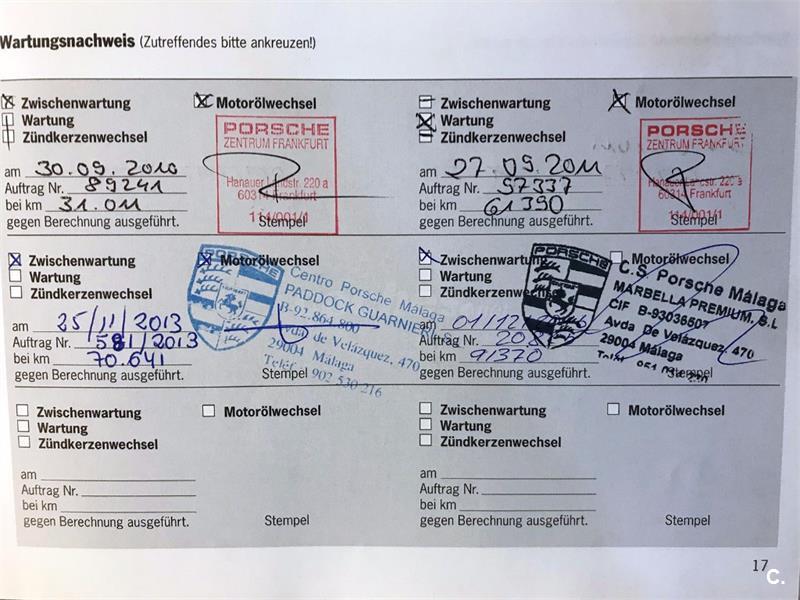 Wartungsnachweis (Zutreffendes bitte ankreuzen!)
Zwischenwartung Motorölwechsel
Wartung
Zündkerzenwechsel
PORSCHE
ZENTRUM FRANKFURT
Hanauer Landstr. 220 a
60314 Frankfurt
114/001/1
am 30.09.2010
Auftrag Nr. 89241
bei km 31.011
gegen Berechnung ausgeführt. Stempel
Zwischenwartung Motorölwechsel
Wartung
Zündkerzenwechsel
PORSCHE
ZENTRUM FRANKFURT
Hanauer Landstr. 220 a
60314 Frankfurt
114/001/1
am 27.09.2011
Auftrag Nr. 97337
bei km 61390
gegen Berechnung ausgeführt. Stempel
Zwischenwartung Motorölwechsel
Wartung
Zündkerzenwechsel
PORSCHE
Centro Porsche Málaga
PADDOCK GUARNIERI
B-92.864.800
Avda de Velázquez, 470
29004 Málaga
Teléf. 902 530 216
am 25/11/2013
Auftrag Nr. 581/2013
bei km 70.641
gegen Berechnung ausgeführt. Stempel
Zwischenwartung Motorölwechsel
Wartung
Zündkerzenwechsel
PORSCHE
C.S. Porsche Málaga
MARBELLA PREMIUM, S.L
CIF B-93036507
Avda De Velázquez, 470
29004 Málaga
am 01/12/
Auftrag Nr.
bei km 91370
gegen Berechnung ausgeführt. Stempel
Zwischenwartung Motorölwechsel
Wartung
Zündkerzenwechsel
am
Auftrag Nr.
bei km
gegen Berechnung ausgeführt. Stempel
Zwischenwartung Motorölwechsel
Wartung
Zündkerzenwechsel
am
Auftrag Nr.
bei km
gegen Berechnung ausgeführt. Stempel
17
C.